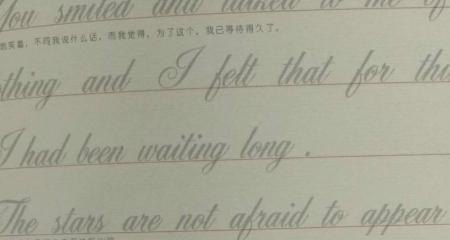 You smiled and talked to me of
地笑着，不同我说什么话。而我觉得，为了这个，我已等待得久了。
thing and I felt that for thi
I had been waiting long .
The stars are not afraid to appear